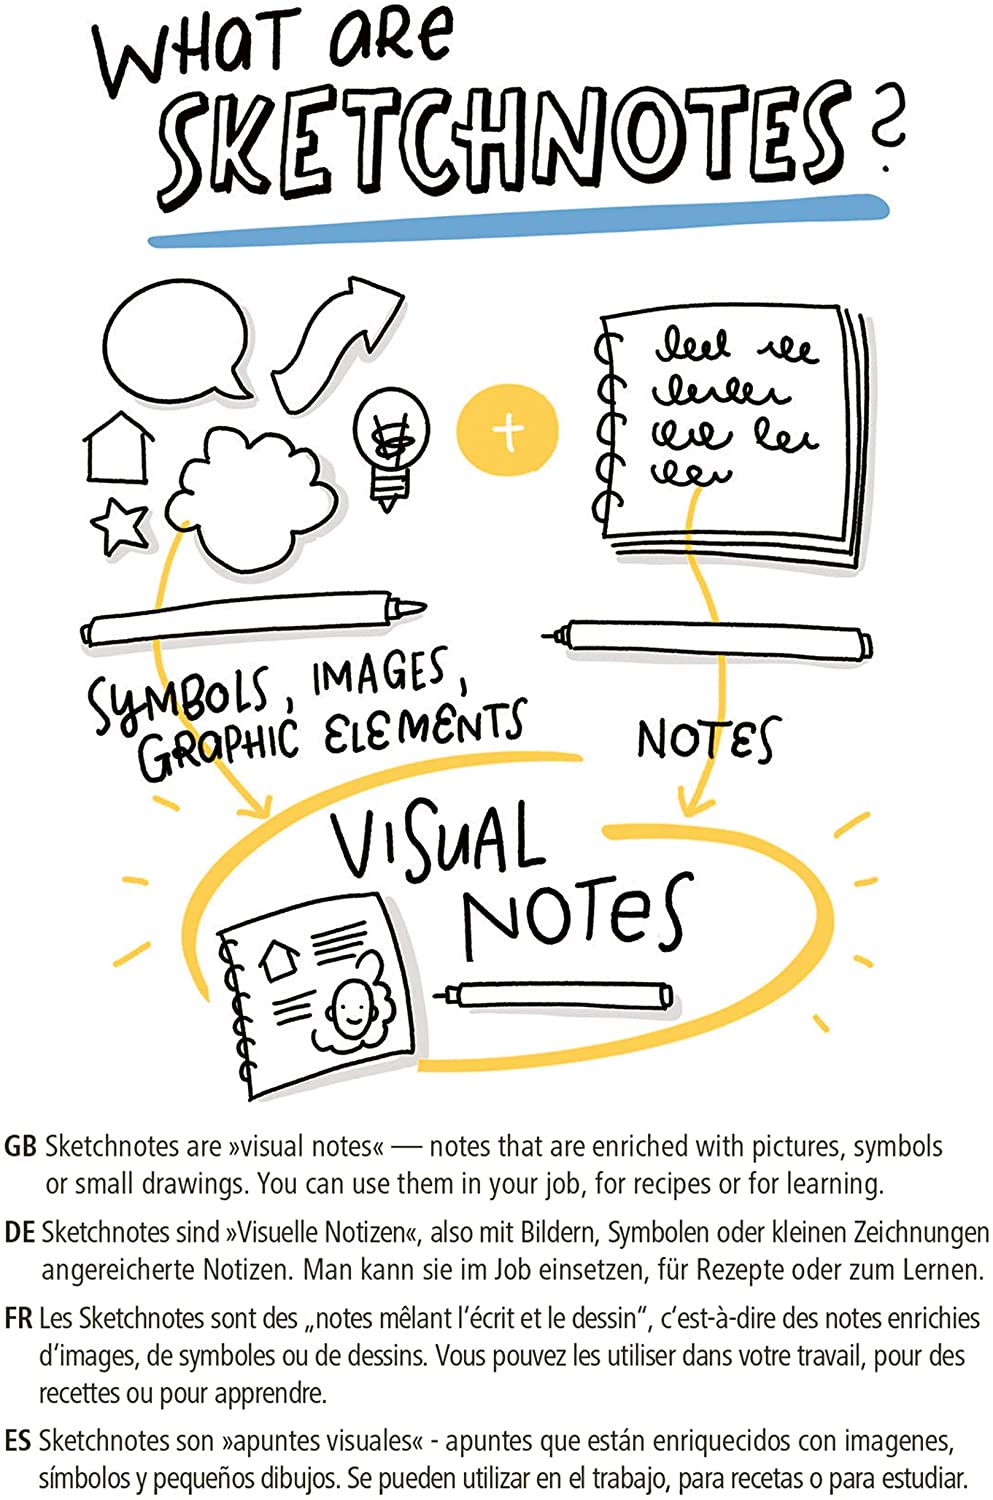 WHAT ARE
SKETCHNOTES?
+
SYMBOLS, IMAGES,
GRAPHIC ELEMENTS
NOTES
VISUAL
NOTES
GB Sketchnotes are »visual notes« — notes that are enriched with pictures, symbols
or small drawings. You can use them in your job, for recipes or for learning.
DE Sketchnotes sind »Visuelle Notizen«, also mit Bildern, Symbolen oder kleinen Zeichnungen
angereicherte Notizen. Man kann sie im Job einsetzen, für Rezepte oder zum Lernen.
FR Les Sketchnotes sont des „notes mêlant l‘écrit et le dessin“, c‘est-à-dire des notes enrichies
d‘images, de symboles ou de dessins. Vous pouvez les utiliser dans votre travail, pour des
recettes ou pour apprendre.
ES Sketchnotes son »apuntes visuales« - apuntes que están enriquecidos con imagenes,
símbolos y pequeños dibujos. Se pueden utilizar en el trabajo, para recetas o para estudiar.